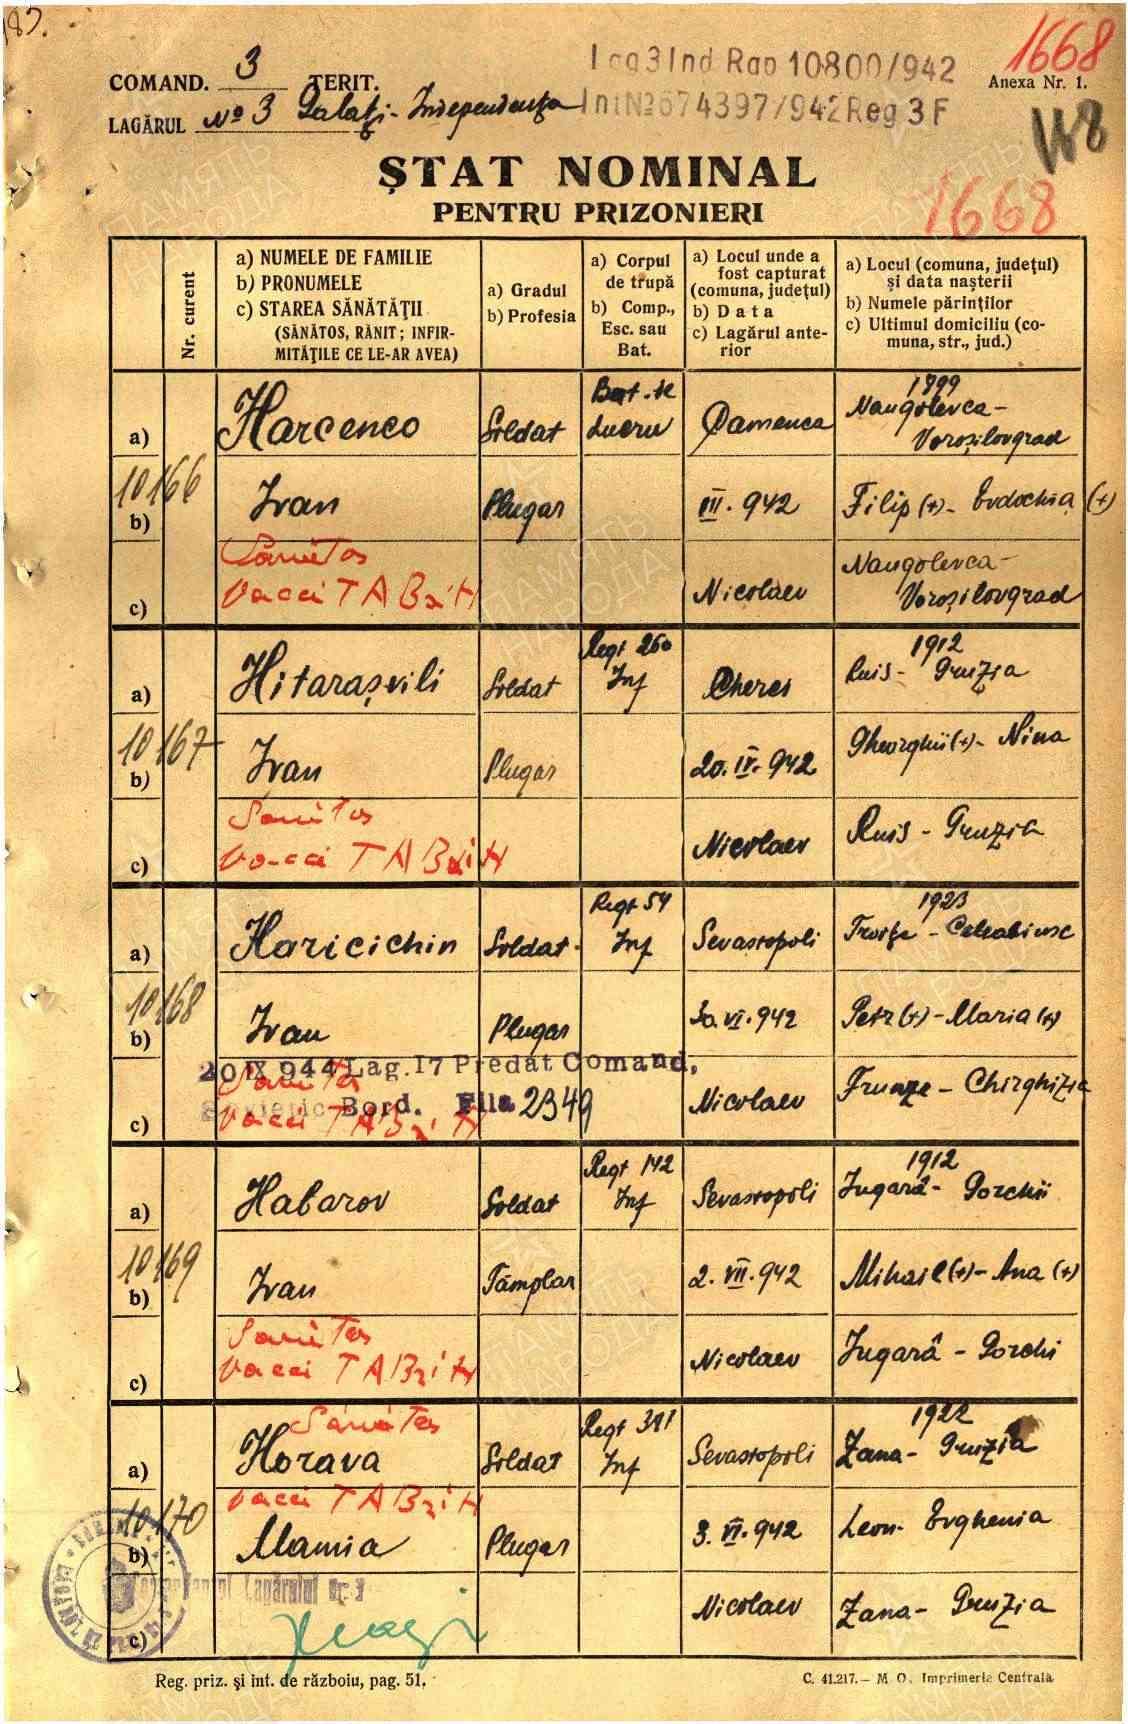 187.
1668
COMAND. 3 TERIT.
Lag 3 Ind Rap 10800/942
Anexa Nr. 1.
LAGĂRUL Nº 3 Galați - Independența
Int Nº 674397/942 Reg 3 F
168
ȘTAT NOMINAL
1668
PENTRU PRIZONIERI
Nr. curent
a) NUMELE DE FAMILIE
b) PRONUMELE
c) STAREA SĂNĂTĂŢII
(SĂNĂTOS, RĂNIT; INFIR-
MITĂŢILE CE LE-AR AVEA)
a) Gradul
b) Profesia
a) Corpul
de trupă
b) Comp.,
Esc. sau
Bat.
a) Locul unde a
fost capturat
(comuna, judeţul)
b) Data
c) Lagărul ante-
rior
a) Locul (comuna, judeţul)
şi data naşterii
b) Numele părinţilor
c) Ultimul domiciliu (co-
muna, str., jud.)
10166
a) Harcenco Soldat Bat. de Lucru Camenca 1899 Naugolevca - Voroşilovgrad
b) Ivan Plugar III. 942 Filip (+) - Evdochia (+)
c) Sănătos Vacci TABxiH Nicolaev Naugolevca - Voroşilovgrad
10167
a) Hitaraşvili Soldat Regt 260 Inf Cheres 1912 Ruis - Gruzia
b) Ivan Plugar 20. IV. 942 Gheorghii (+) - Nina
c) Sănătos Vacci TABxiH Nicolaev Ruis - Gruzia
10168
a) Haricichin Soldat Regt 54 Inf Sevastopoli 1923 Troiţe - Celeabinsc
b) Ivan Plugar 30. VI. 942 Petr (+) - Maria (+)
20 IX 944 Lag. 17 Predat Comand,
Sovietic Bord. Fila 2349
c) Sănătos Vacci TABxiH Nicolaev Frunze - Chirghizia
10169
a) Habarov Soldat Regt 142 Inf Sevastopoli 1912 Iugară - Gorchii
b) Ivan Tâmplar 2. VII. 942 Mihail (+) - Ana (+)
c) Sănătos Vacci TABxiH Nicolaev Iugară - Gorchi
10170
Sănătos
a) Horava Soldat Regt 381 Inf Sevastopoli 1922 Zana - Gruzia
Vacci TABxiH
b) Mamia Plugar 3. VI. 942 Leon - Evghenia
Comandantul Lagărului Nr. 3
c) Nicolaev Zana - Gruzia
Reg. priz. şi int. de războiu, pag. 51.
C. 41.217. — M. O. Imprimeria Centrală
ПАМЯТЬ
НАРОДА